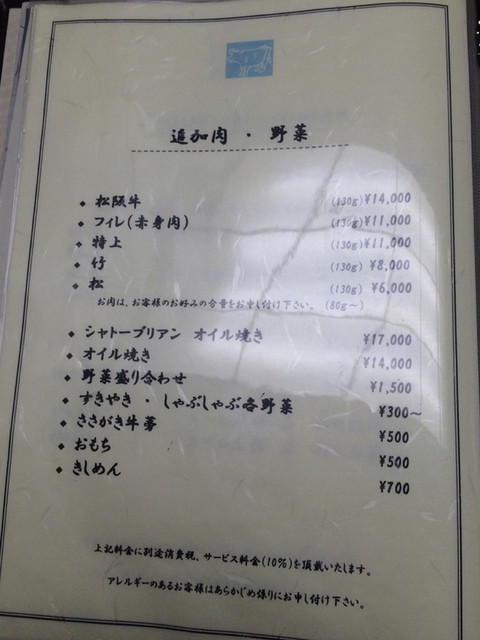 追加肉 ・ 野菜
◆ 松阪牛 (130g) ¥14,000
◆ フィレ(赤身肉) (130g) ¥11,000
◆ 特上 (130g) ¥11,000
◆ 竹 (130g) ¥8,000
◆ 松 (130g) ¥6,000
お肉は、お客様のお好みの分量をお申し付け下さい。 (80g～)
◆ シャトーブリアン オイル焼き ¥17,000
◆ オイル焼き ¥14,000
◆ 野菜盛り合わせ ¥1,500
◆ すきやき ・ しゃぶしゃぶ各野菜 ¥300～
◆ ささがき牛蒡 ¥500
◆ おもち ¥500
◆ きしめん ¥700
上記料金に別途消費税、サービス料金(10%)を頂戴いたします。
アレルギーのあるお客様はあらかじめ係りにお申し付け下さい。